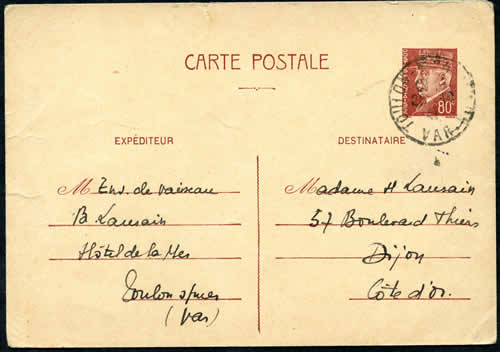 CARTE POSTALE
80c
TOULON
VAR
EXPÉDITEUR
M Ens. de vaisseau
B Laurain
Hôtel de la Mer
Toulon s/mer
(Var)
DESTINATAIRE
Madame H Laurain
57 Boulevard Thiers
Dijon
Côte d'or.